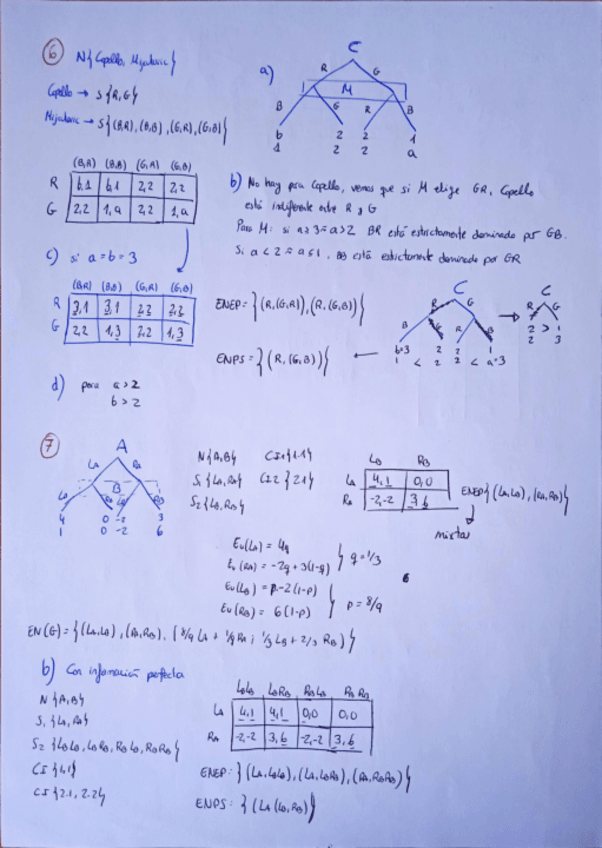 6 N{Capello, Mijatovic}
Capello → S{R,G}
Mijatovic → S{(B,R), (B,B), (G,R), (G,B)}
a)
C
R G
M
B G R B
b 2 2 1
1 2 2 a
(B,R) (B,B) (G,R) (G,B)
R b,1 b,1 2,2 2,2
G 2,2 1,a 2,2 1,a
b) No hay para Capello, vemos que si M elige GR, Capello
está indiferente entre R y G
Para M: si a≥3 = a>2 BR está estrictamente dominado por GB.
Si a<2 = a≤1, BB está estrictamente dominado por GR
c) si a=b=3
(B,R) (B,B) (G,R) (G,B)
R 3,1 3,1 2,2 2,2
G 2,2 1,3 2,2 1,3
ENEP = {(R,(G,R)), (R,(G,B))}
ENPS = {(R,(G,B))}
C
R G
B G R B
b=3 2 2 1
1 < 2 2 < a=3
C
R G
2 > 1
2 3
d) para a>2
b>2
7
A
LA RA
B
LB RB LB RB
4 0 -2 3
1 0 -2 6
N{A,B} CI1{1.1}
S1{LA,RA} CI2{2.1}
S2{LB,RB}
LB RB
LA 4,1 0,0
RA -2,-2 3,6
ENEP{(LA,LB), (RA,RB)}
mixtas
EU(LA) = 4q
EU(RA) = -2q+3(1-q) } q=1/3
EU(LB) = p-2(1-p)
EU(RB) = 6(1-p) } p=8/9
EN(G) = {(LA,LB), (RA,RB), (8/9 LA + 1/9 RA ; 1/3 LB + 2/3 RB)}
b) Con información perfecta
N{A,B}
S1{LA,RA}
S2{LBLB, LBRB, RBLB, RBRB}
CI{1.1}
CI{2.1, 2.2}
LBLB LBRB RBLB RBRB
LA 4,1 4,1 0,0 0,0
RA -2,-2 3,6 -2,-2 3,6
ENEP: {(LA,LBLB), (LA,LBRB), (RA,RBRB)}
ENPS: {(LA(LB,RB)}